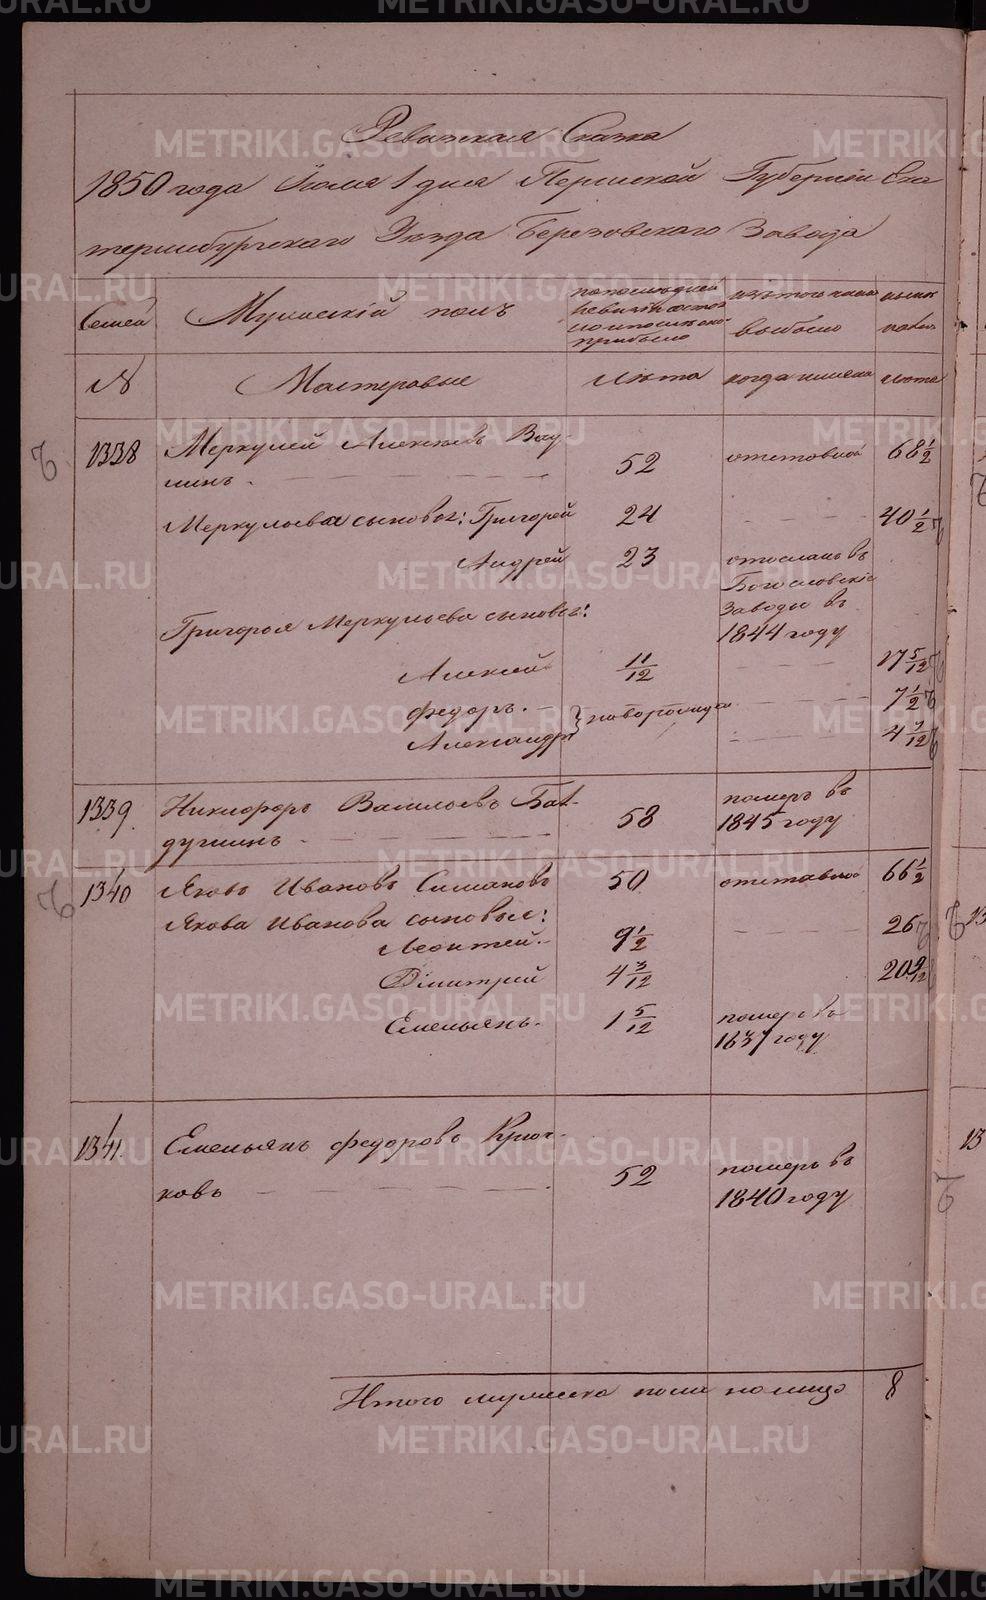 Ревизская Сказка
1850 года Июля 1 дня Пермской Губернии Ека
теринбургскаго Уезда Березовскаго Завода
Семей
Мужескій полъ
по последней
ревизіи состо
яло и после оно
прибыло
изъ того числа
выбыло
ныне
на лицо
№
Мастеровые
Лета
когда именно
лета
1338
Меркулей Алексеевъ
52
отставной
68 1/2
Меркульева сыновья: Григорей
24
40 1/2
Андрей
23
отосланъ въ
Богословскіе
Заводы въ
1844 году
Григорья Меркульева сыновья:
Алексей
11/12
17 5/12
Федоръ
новорожден
7 1/2
Александръ
4 7/12
1339
Никифоръ Васильевъ Бал-
дугинъ
58
померъ въ
1845 году
1340
Яковъ Ивановъ Симаковъ
50
отставной
66 1/2
Якова Иванова сыновья:
Леонтей
9 1/2
26
Дмитрей
4 3/12
20 9/12
Емельянъ
1 5/12
померъ въ
1837 году
1341
Емельянъ Федоровъ Крюч-
ковъ
52
померъ въ
1840 году
Итого мужеска пола на лицо
8
METRIKI.GASO-URAL.RU